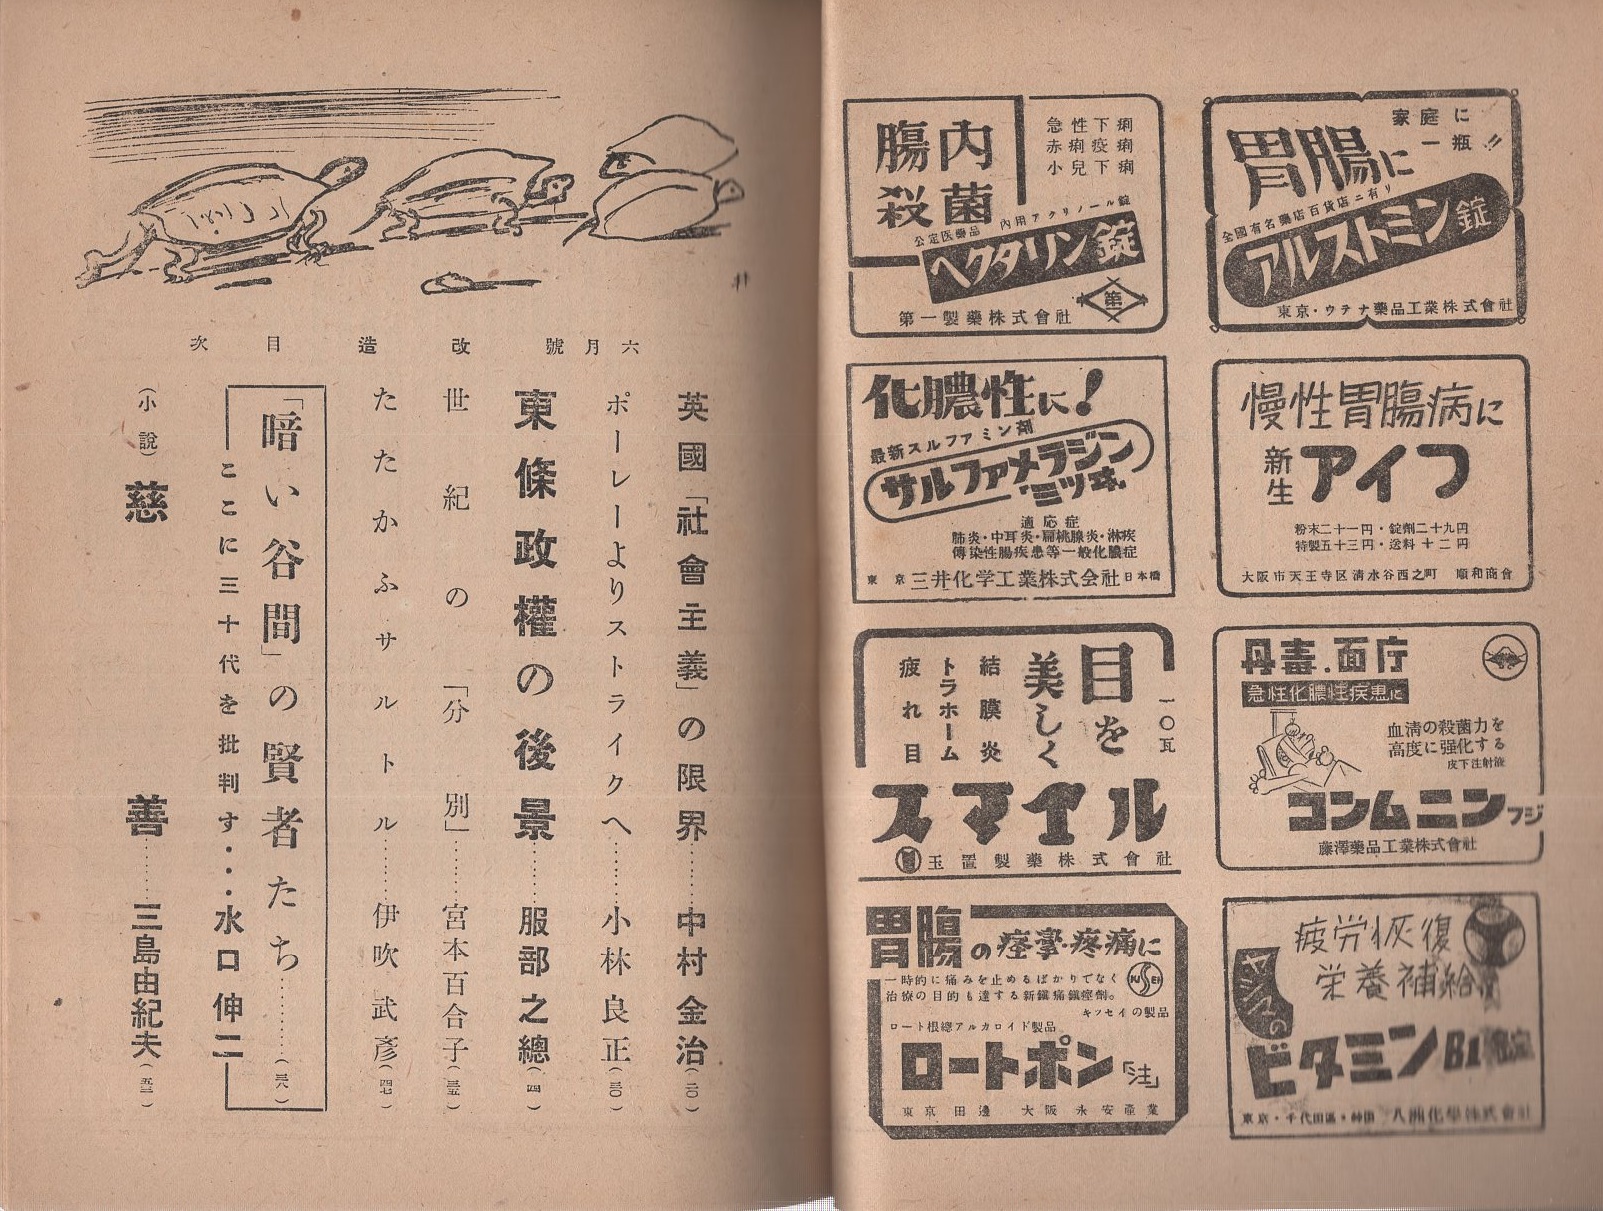 家庭に
一瓶!!
胃腸に
全國有名藥店百貨店ニ有リ
アルストミン錠
東京・ウテナ藥品工業株式會社
急性下痢
赤痢疫痢
小兒下痢
腸内
殺菌
内用アクリノール錠
公定医藥品
ヘクタリン錠
第一製藥株式會社
慢性胃腸病に
新生
アイフ
粉末二十一円・錠劑二十九円
特製五十三円・送料十二円
大阪市天王寺区清水谷西之町 順和商會
化膿性に!
最新スルファミン剤
サルファメラジン
ミツヰ
適応症
肺炎・中耳炎・扁桃腺炎・淋疾
傳染性腸疾患等一般化膿症
東京 三井化学工業株式会社 日本橋
丹毒.面庁
急性化膿性疾患に
血清の殺菌力を
高度に强化する
皮下注射液
コンムニン フジ
藤澤藥品工業株式會社
目を
美しく
結膜炎
トラホーム
疲れ目
一〇瓦
スマイル
玉置製藥株式會社
疲労恢復
栄養補給
ヤシマの
ビタミンB1錠
東京・千代田區・神田 八洲化學株式會社
胃腸の痙攣・疼痛に
一時的に痛みを止めるばかりでなく
治療の目的も達する新鎭痛鎭痙劑。
KISSEI
キッセイの製品
ロート根總アルカロイド製品
ロートポン「注」
東京田邊 大阪永安產業
六月號 改造 目次
英國「社會主義」の限界………中村金治(二〇)
ポーレーよりストライクへ………小林良正(三〇)
東條政權の後景………服部之總(四)
世紀の「分別」………宮本百合子(三五)
たたかふサルトル………伊吹武彥(四七)
「暗い谷間」の賢者たち………(三八)
ここに三十代を批判す・・・水口伸二
(小說)慈善………三島由紀夫(五三)